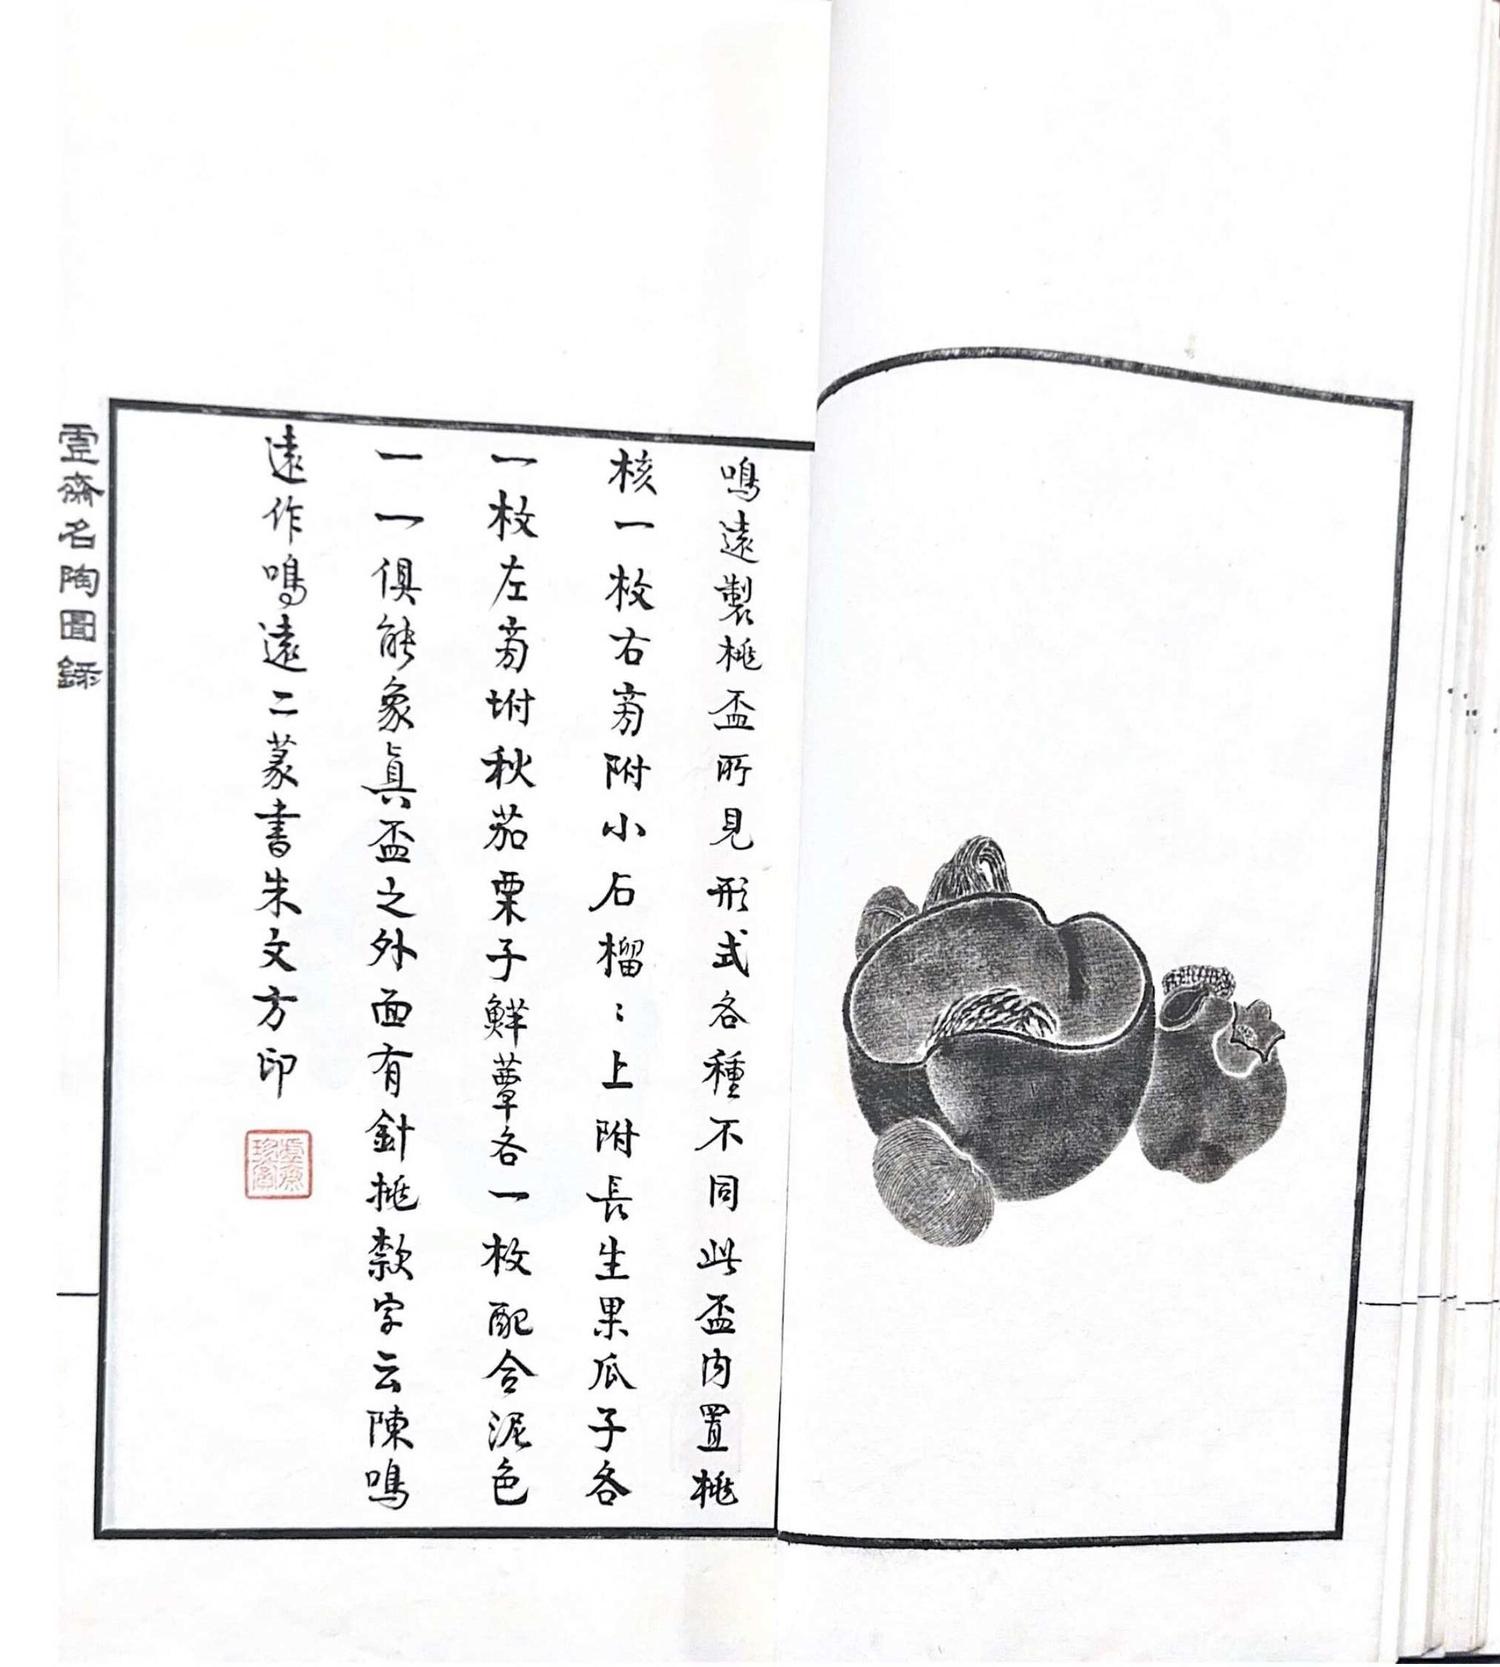 鳴遠製桃盃所見形式各種不同此盃内置桃
核一枚右旁附小石榴〻上附長生果瓜子各
一枚左旁坿秋茄栗子鮮蕈各一枚配合泥色
一一俱能象眞盃之外面有針挑款字云陳鳴
遠作鳴遠二篆書朱文方印
虛齋名陶圖錄